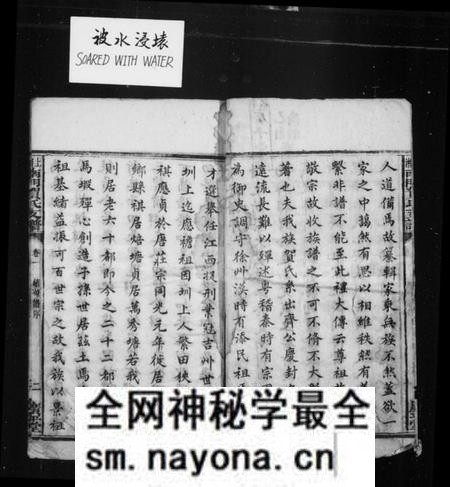 被水浸壞
SOARED WITH WATER
人道備焉故纂輯家乘無族不然蓋欲一
家之中藹然有恩以相維秩然有
繫非譜不能至此禮大傳云尊祖
敬宗故收族譜之不可不脩不大
著也夫我族賀氏系出齊公慶封
遠流長難以殫述粵稽秦時有宗
為御史調守徐州漢時有添民祖
才選舉任江西刑章冠吉州世
圳上迄應禧祖因圳上人繁田狹
祺應貞於唐莊宗同光元年徙居
鄉縣祺居焙塘貞居萬秀塘若我
則居老六十都即今之二十二都
馬嘏殫心創造子孫世居茲土焉
祖基緒益振可百世宗之故我族以祖
卷一
二
全网神秘学最全
sm.nayona.cn